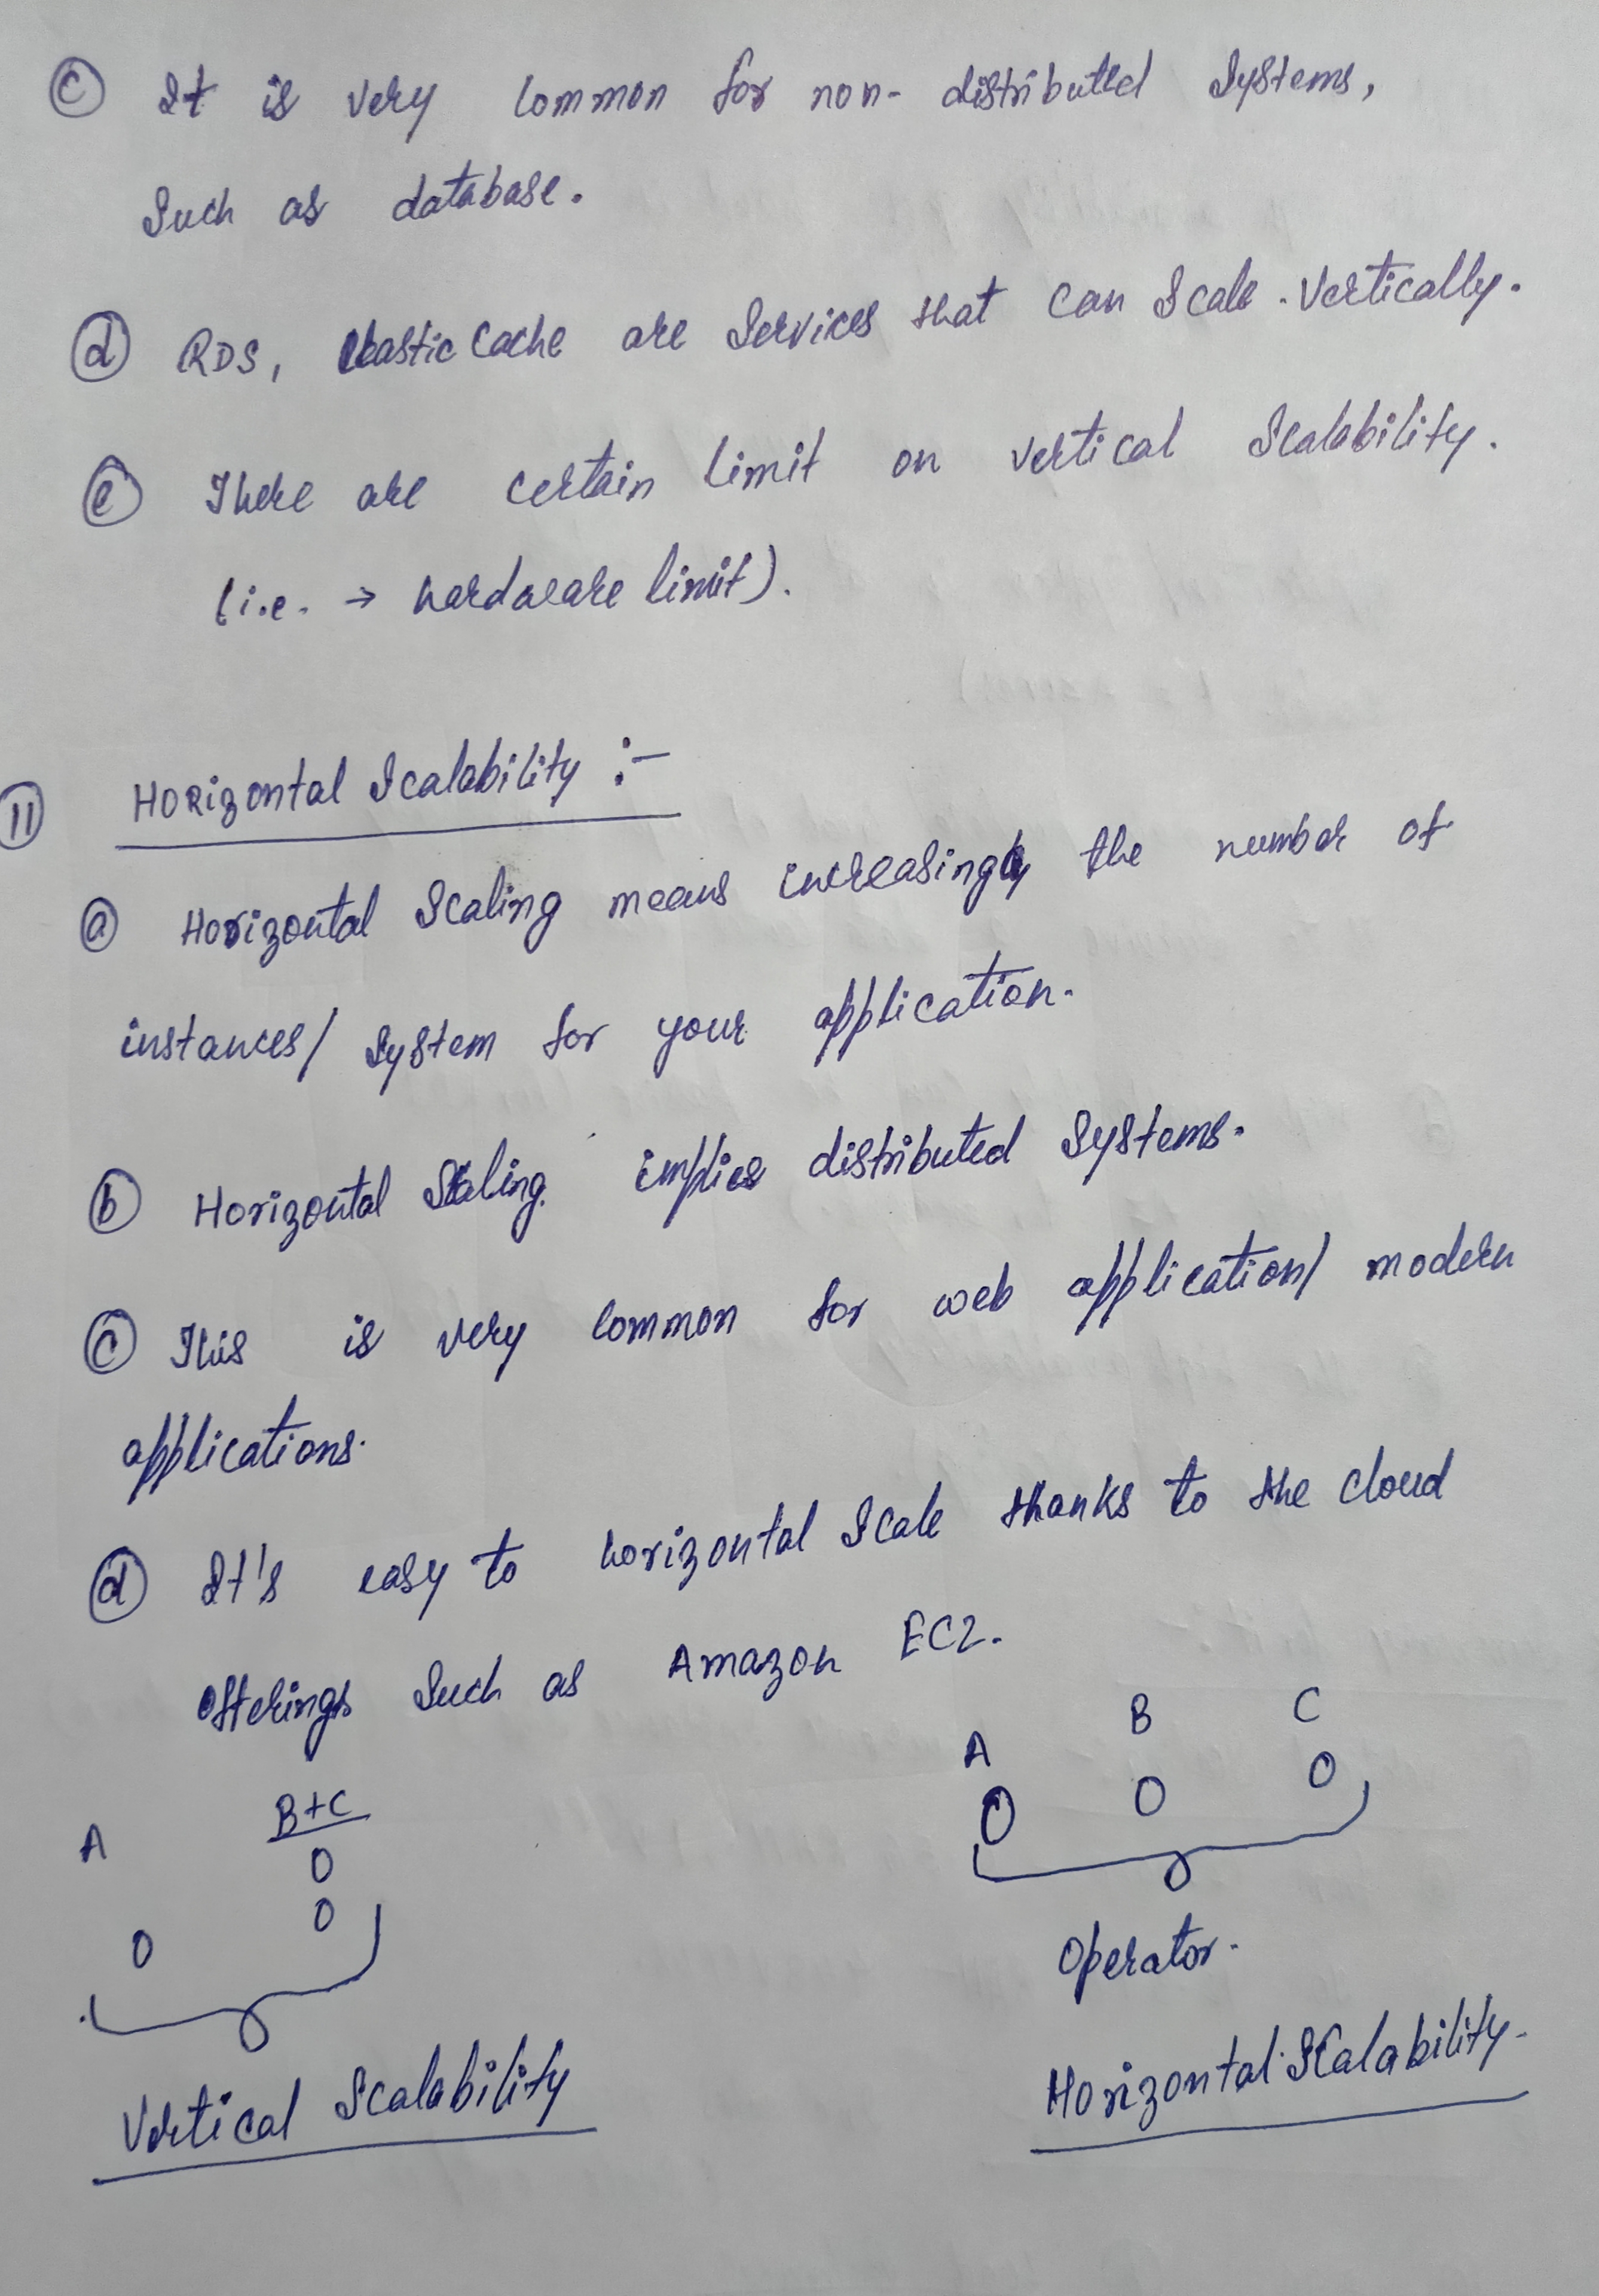 c It is very common for non-distributed systems,
such as database.
d RDS, Elastic Cache are services that can scale vertically.
e There are certain limit on vertical scalability.
(i.e. → hardware limit).
11 Horizontal Scalability :-
a Horizontal scaling means increasingly the number of
instances/ system for your application.
b Horizontal scaling implies distributed systems.
c This is very common for web application/ modern
applications.
d It's easy to horizontal scale thanks to the cloud
offerings such as Amazon EC2.
A B+C
O
O
O
Vertical Scalability
A B C
O O O
Operator.
Horizontal Scalability.